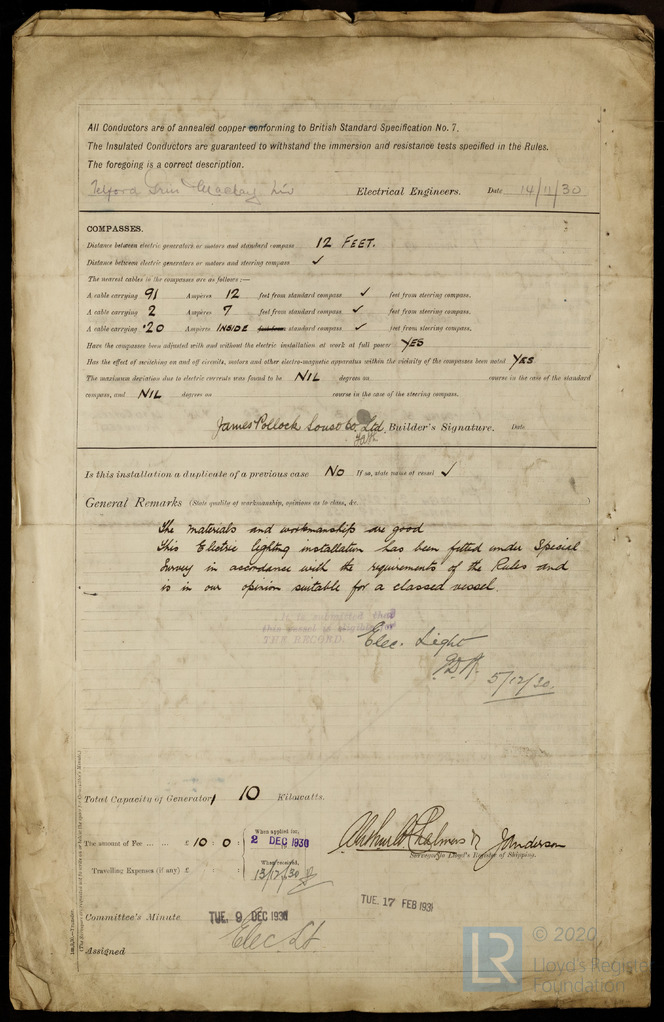 All Conductors are of annealed copper conforming to British Standard Specification No. 7.
The Insulated Conductors are guaranteed to withstand the immersion and resistance tests specified in the Rules.
The foregoing is a correct description.
Telford Grier Mackay Ltd Electrical Engineers. Date 14/11/30
COMPASSES.
Distance between electric generators or motors and standard compass 12 FEET.
Distance between electric generators or motors and steering compass ✓
The nearest cables to the compasses are as follows:—
A cable carrying 91 Amperes 12 feet from standard compass ✓ feet from steering compass.
A cable carrying 2 Amperes 7 feet from standard compass ✓ feet from steering compass.
A cable carrying ·20 Amperes INSIDE standard compass ✓ feet from steering compass.
Have the compasses been adjusted with and without the electric installation at work at full power YES
Has the effect of switching on and off circuits, motors and other electro-magnetic apparatus within the vicinity of the compasses been noted YES
The maximum deviation due to electric currents was found to be NIL degrees on course in the case of the standard
compass, and NIL degrees on course in the case of the steering compass.
James Pollock Sons & Co. Ltd. Builder's Signature. Date
Is this installation a duplicate of a previous case NO If so, state name of vessel ✓
General Remarks (State quality of workmanship, opinions as to class, &c.
The materials and workmanship are good
This Electric lighting installation has been fitted under Special
Survey in accordance with the requirements of the Rules and
is in our opinion suitable for a classed vessel.
It is submitted that
this vessel is eligible for
THE RECORD. Elec. Light
5/12/30.
Total Capacity of Generator 10 Kilowatts.
The amount of Fee ... ... £ 10 : 0 : When applied for, 2 DEC 1930
Travelling Expenses (if any) £ : : When received, 13/12/30
Surveyor to Lloyd's Register of Shipping.
Committee's Minute TUE. 9 DEC 1930 TUE. 17 FEB 1931
Assigned Elec. Lt.
© 2020
Lloyd's Register
Foundation